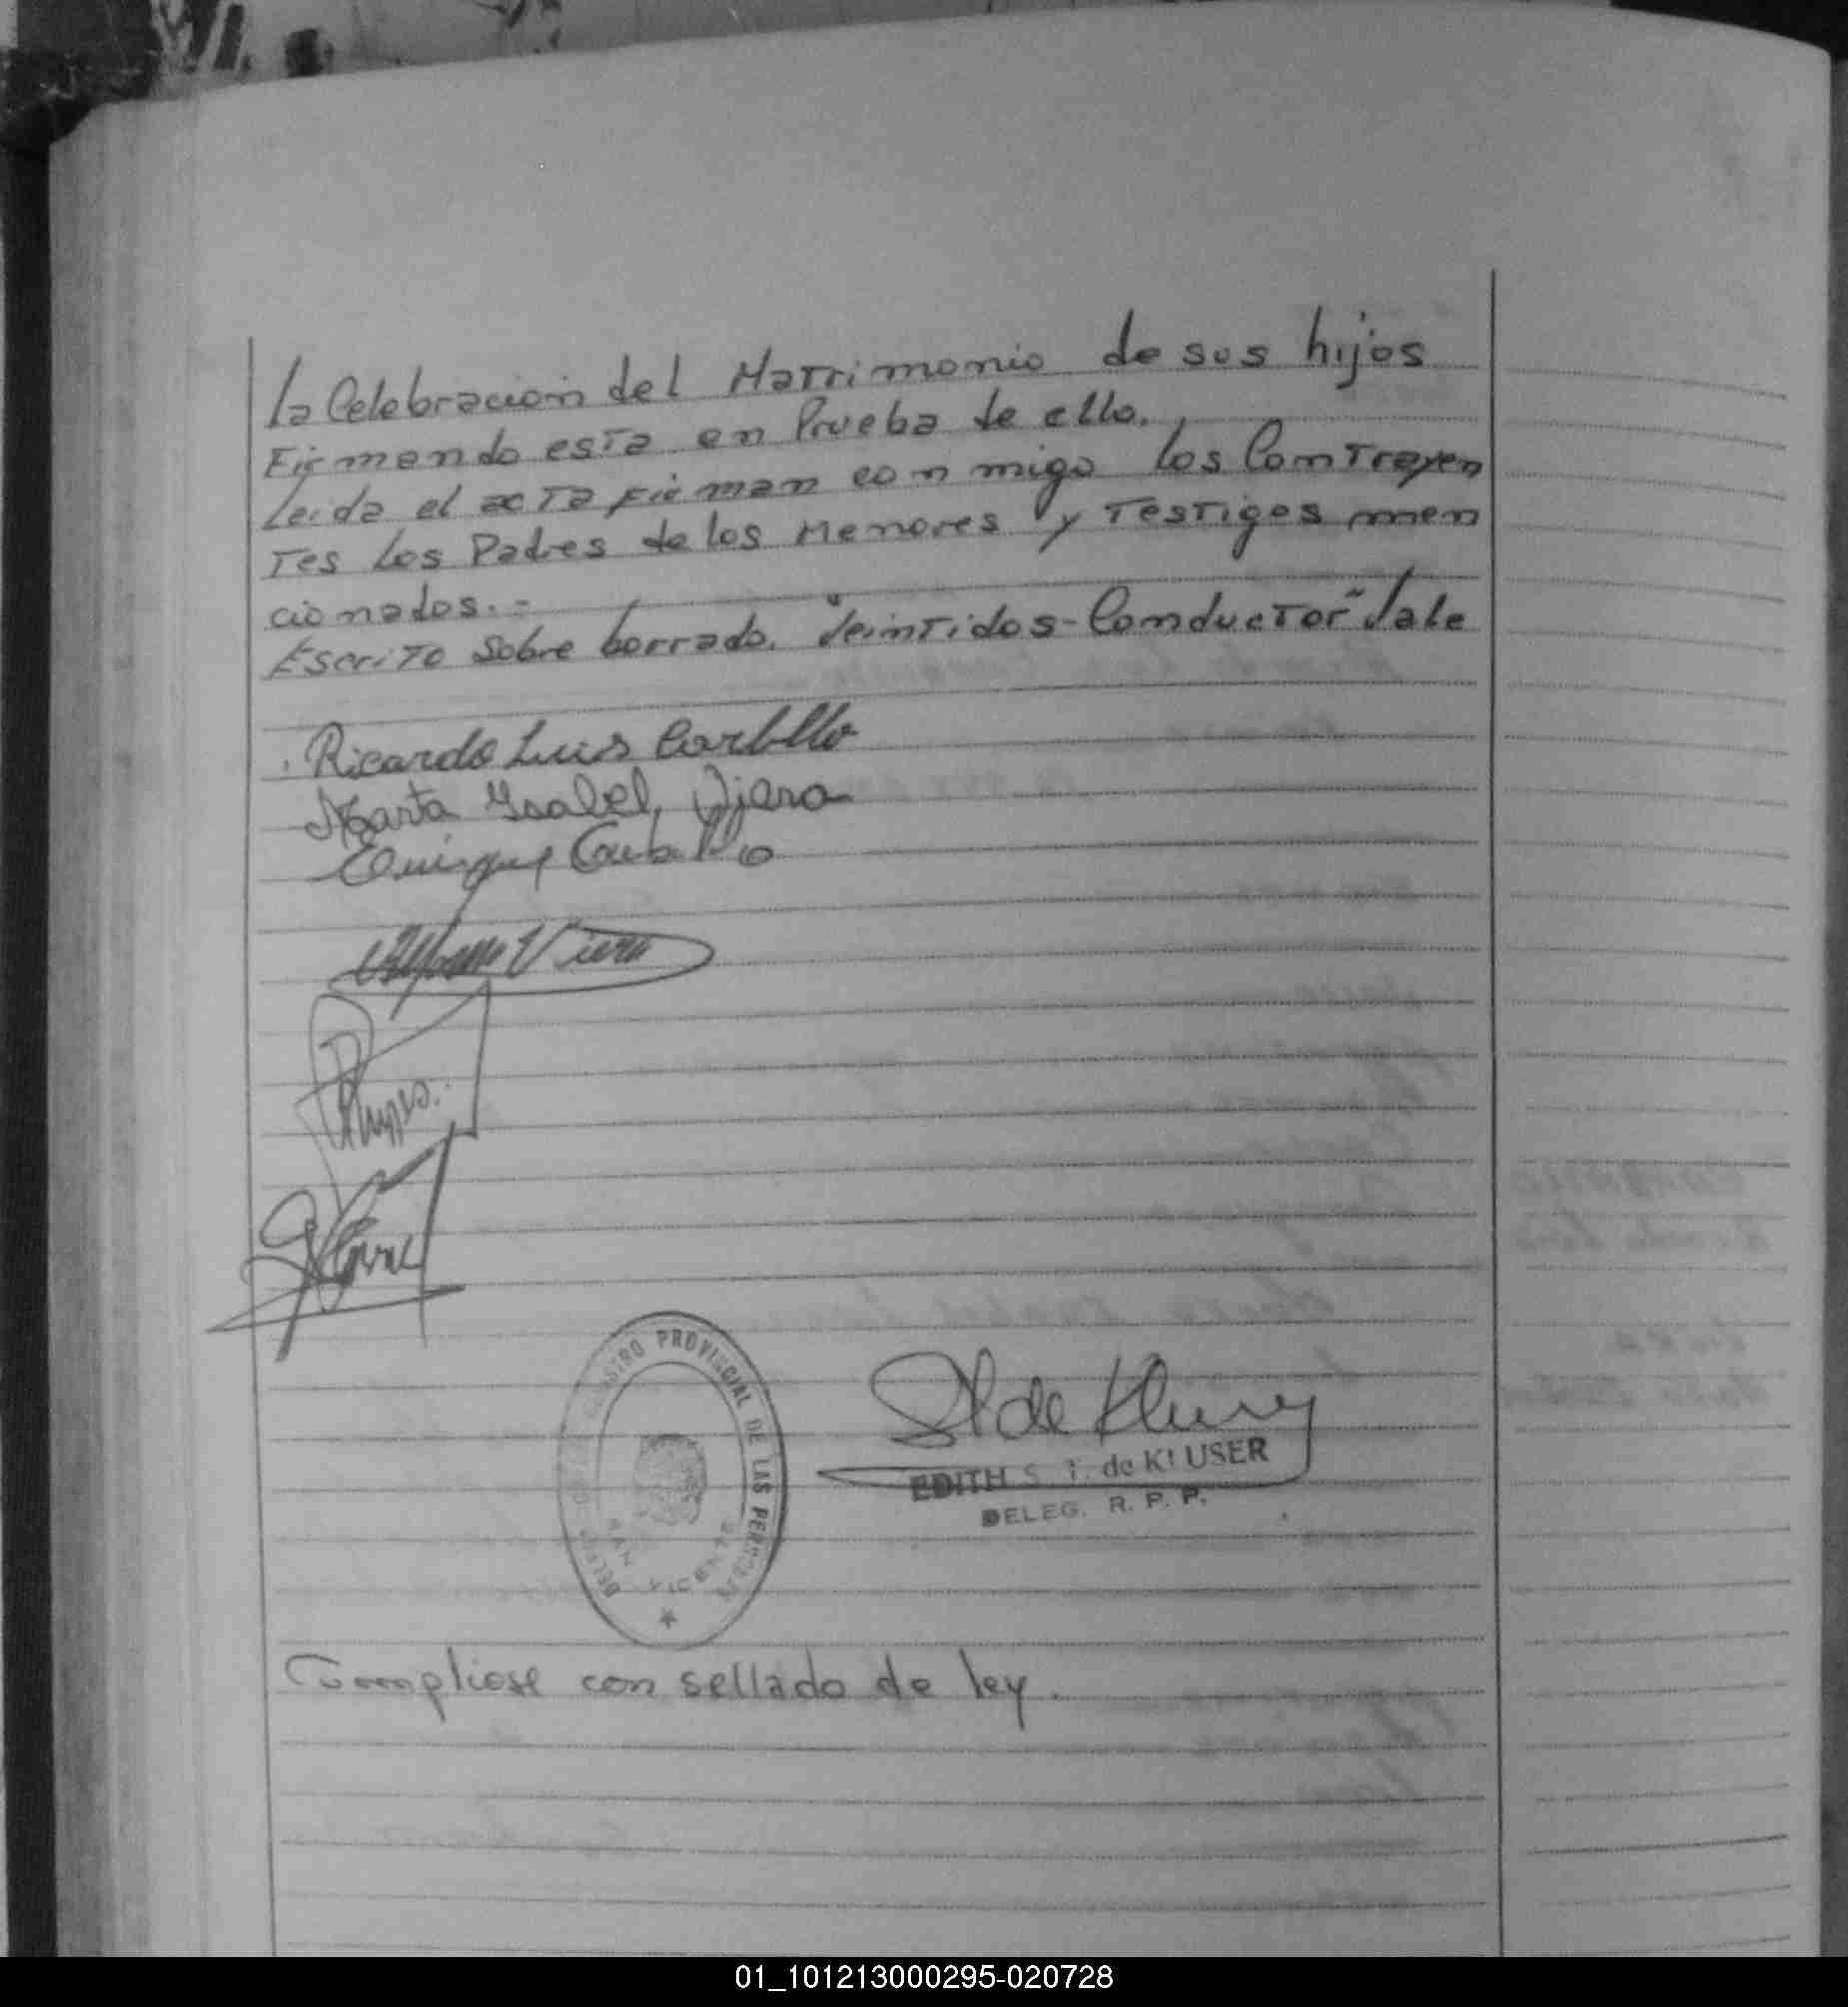 la Celebracion del Matrimonio de sus hijos
Firmando esta en Prueba de ello.
Leida el acta firman conmigo los Contrayen
tes los Padres de los Menores y Testigos men
cionados.-
Escrito sobre borrado. "Veintidos-Conductor" Vale
Ricardo Luis Carballo
Marta Ysabel Viera
Enrique Carballo
Viera
PROVINCIAL DE LAS PERSONAS
SAN VICENTE
EDITH S. T. de KLUSER
DELEG. R. P. P.
Cumpliose con sellado de ley.
01_101213000295-020728